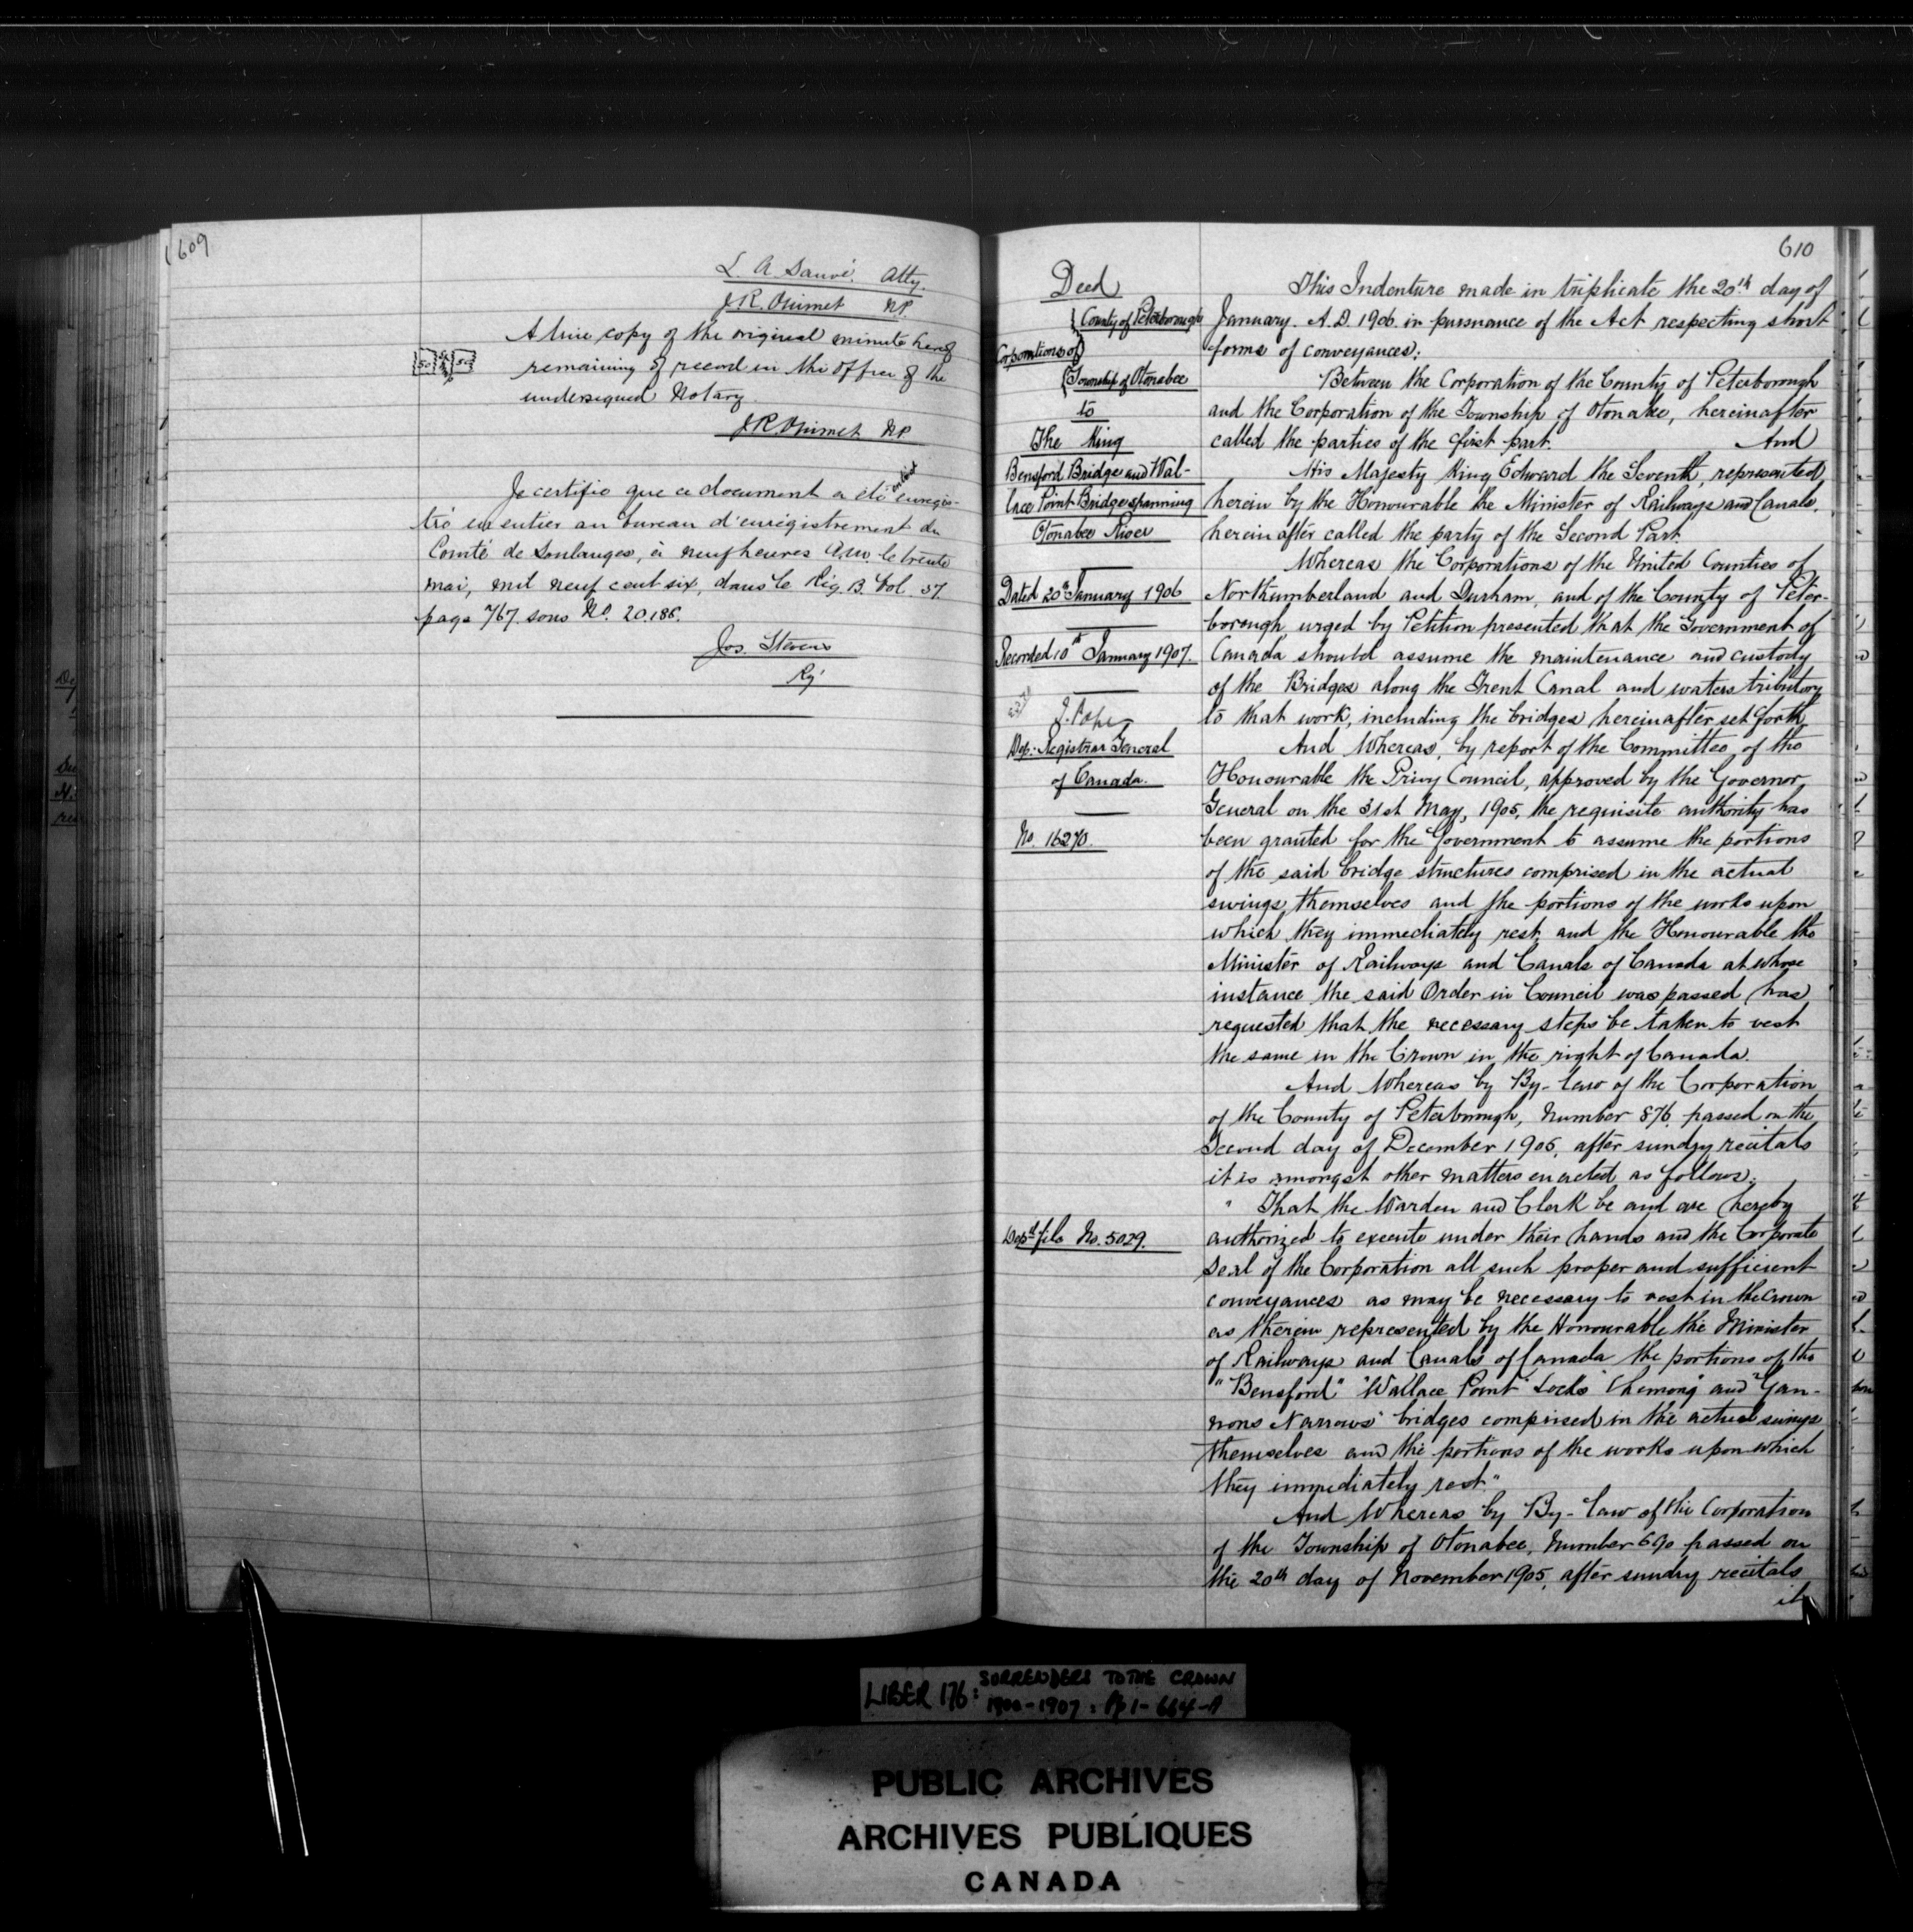 609
L A Sauvé. Atty.
J.R. Ouimet NP.
A true copy of the original minute hereof
remaining of record in the office of the
undersigned Notary.
J.R. Ouimet NP
Je certifie que ce document a été enregis-
tré en entier au bureau d'enrégistrement du
Comté de Soulanges, à neuf heures A.M. le trente
mai, mil neuf cent six, dans le Rég. B. Vol. 37
page 767 sous No. 20.188.
Jos. Stevens
Rg.
610
Deed
County of Peterborough
Corporations of
Township of Otonabee
to
The King
Bensford Bridge and Wal-
lace Point Bridge spanning
Otonabee River
Dated 20th January 1906
Recorded 10th January 1907.
J. Pope
Dep. Registrar General
of Canada.
No. 16270.
Dept file No. 5029.
This Indenture made in triplicate the 20th day of
January. A.D. 1906 in pursuance of the Act respecting short
forms of conveyances:
Between the Corporation of the County of Peterborough
and the Corporation of the Township of Otonabee, hereinafter
called the parties of the first part. And
His Majesty King Edward the Seventh, represented
herein by the Honourable the Minister of Railways and Canals,
hereinafter called the party of the Second Part.
Whereas the Corporations of the United Counties of
Northumberland and Durham, and of the County of Peter-
borough urged by Petition presented that the Government of
Canada should assume the maintenance and custody
of the Bridges along the Trent Canal and waters tributory
to that work, including the bridges hereinafter set forth.
And Whereas, by report of the Committee of the
Honourable the Privy Council, approved by the Governor
General on the 31st May, 1905, the requisite authority has
been granted for the Government to assume the portions
of the said bridge structures comprised in the actual
swings themselves and the portions of the works upon
which they immediately rest, and the Honourable the
Minister of Railways and Canals of Canada at whose
instance the said Order in Council was passed has
requested that the necessary steps be taken to vest
the same in the Crown in the right of Canada.
And Whereas by By-law of the Corporation
of the County of Peterborough, Number 876 passed on the
Second day of December 1905, after sundry recitals
it is amongst other matters enacted as follows:
" That the Warden and Clerk be and are hereby
authorized to execute under their hands and the Corporate
Seal of the Corporation all such proper and sufficient
conveyances as may be necessary to vest in the Crown
as therein represented by the Honourable the Minister
of Railways and Canals of Canada the portions of the
"Bensford" "Wallace Point" Locks "Chemong" and "Gan-
nons Narrows" bridges comprised in the actual swings
themselves and the portions of the works upon which
they immediately rest."
And Whereas by By-law of the Corporation
of the Township of Otonabee, Number 690 passed on
the 20th day of November 1905, after sundry recitals
it
LIBER 176: SURRENDERS TO THE CROWN
1900-1907: Pp 1-664-A
PUBLIC ARCHIVES
ARCHIVES PUBLIQUES
CANADA